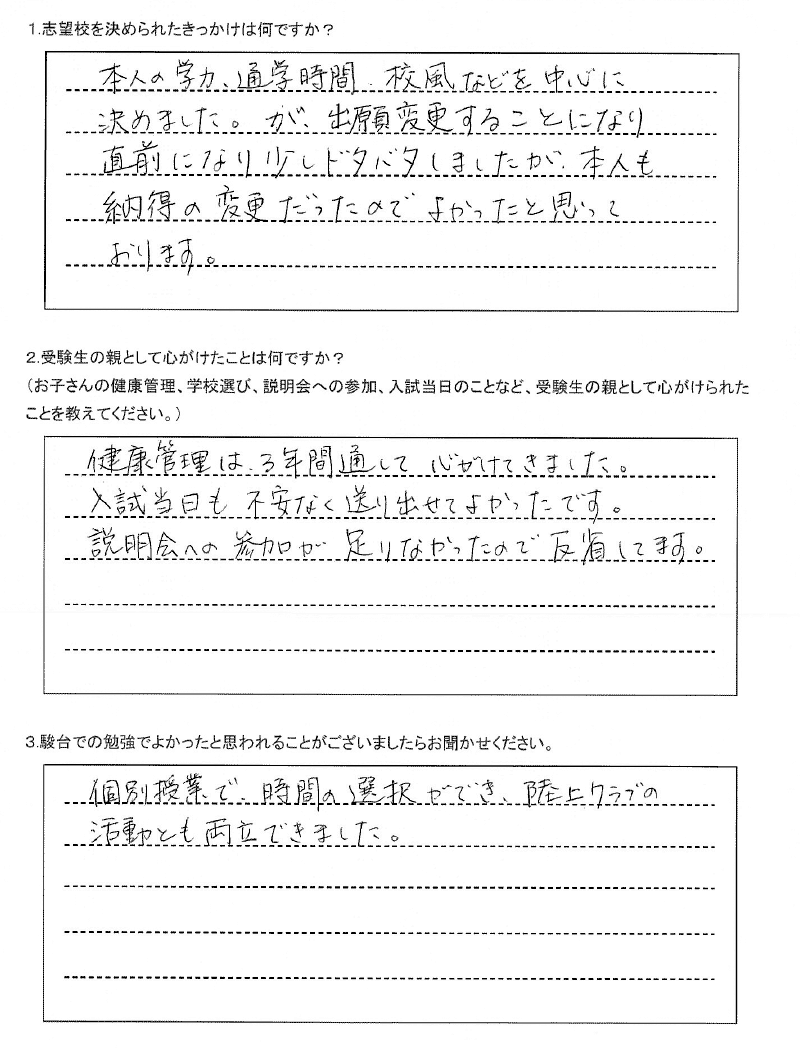 1.志望校を決められたきっかけは何ですか？
本人の学力、通学時間、校風などを中心に
決めました。が、出願変更することになり
直前になり少しドタバタしましたが、本人も
納得の変更だったのでよかったと思って
おります。
2.受験生の親として心がけたことは何ですか？
（お子さんの健康管理、学校選び、説明会への参加、入試当日のことなど、受験生の親として心がけられた
ことを教えてください。）
健康管理は、3年間通して心がけてきました。
入試当日も不安なく送り出せてよかったです。
説明会への参加が足りなかったので反省してます。
3.駿台での勉強でよかったと思われることがございましたらお聞かせください。
個別授業で、時間の選択ができ、陸上クラブの
活動とも両立できました。